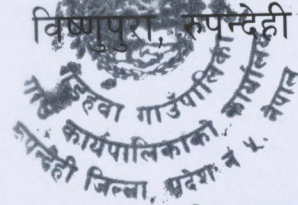 विष्णुपुरा, रुपन्देही
गैडहवा गाउँपालिका
गाउँ कार्यपालिकाको कार्यालय
रुपन्देही जिल्ला, प्रदेश नं ५, नेपाल